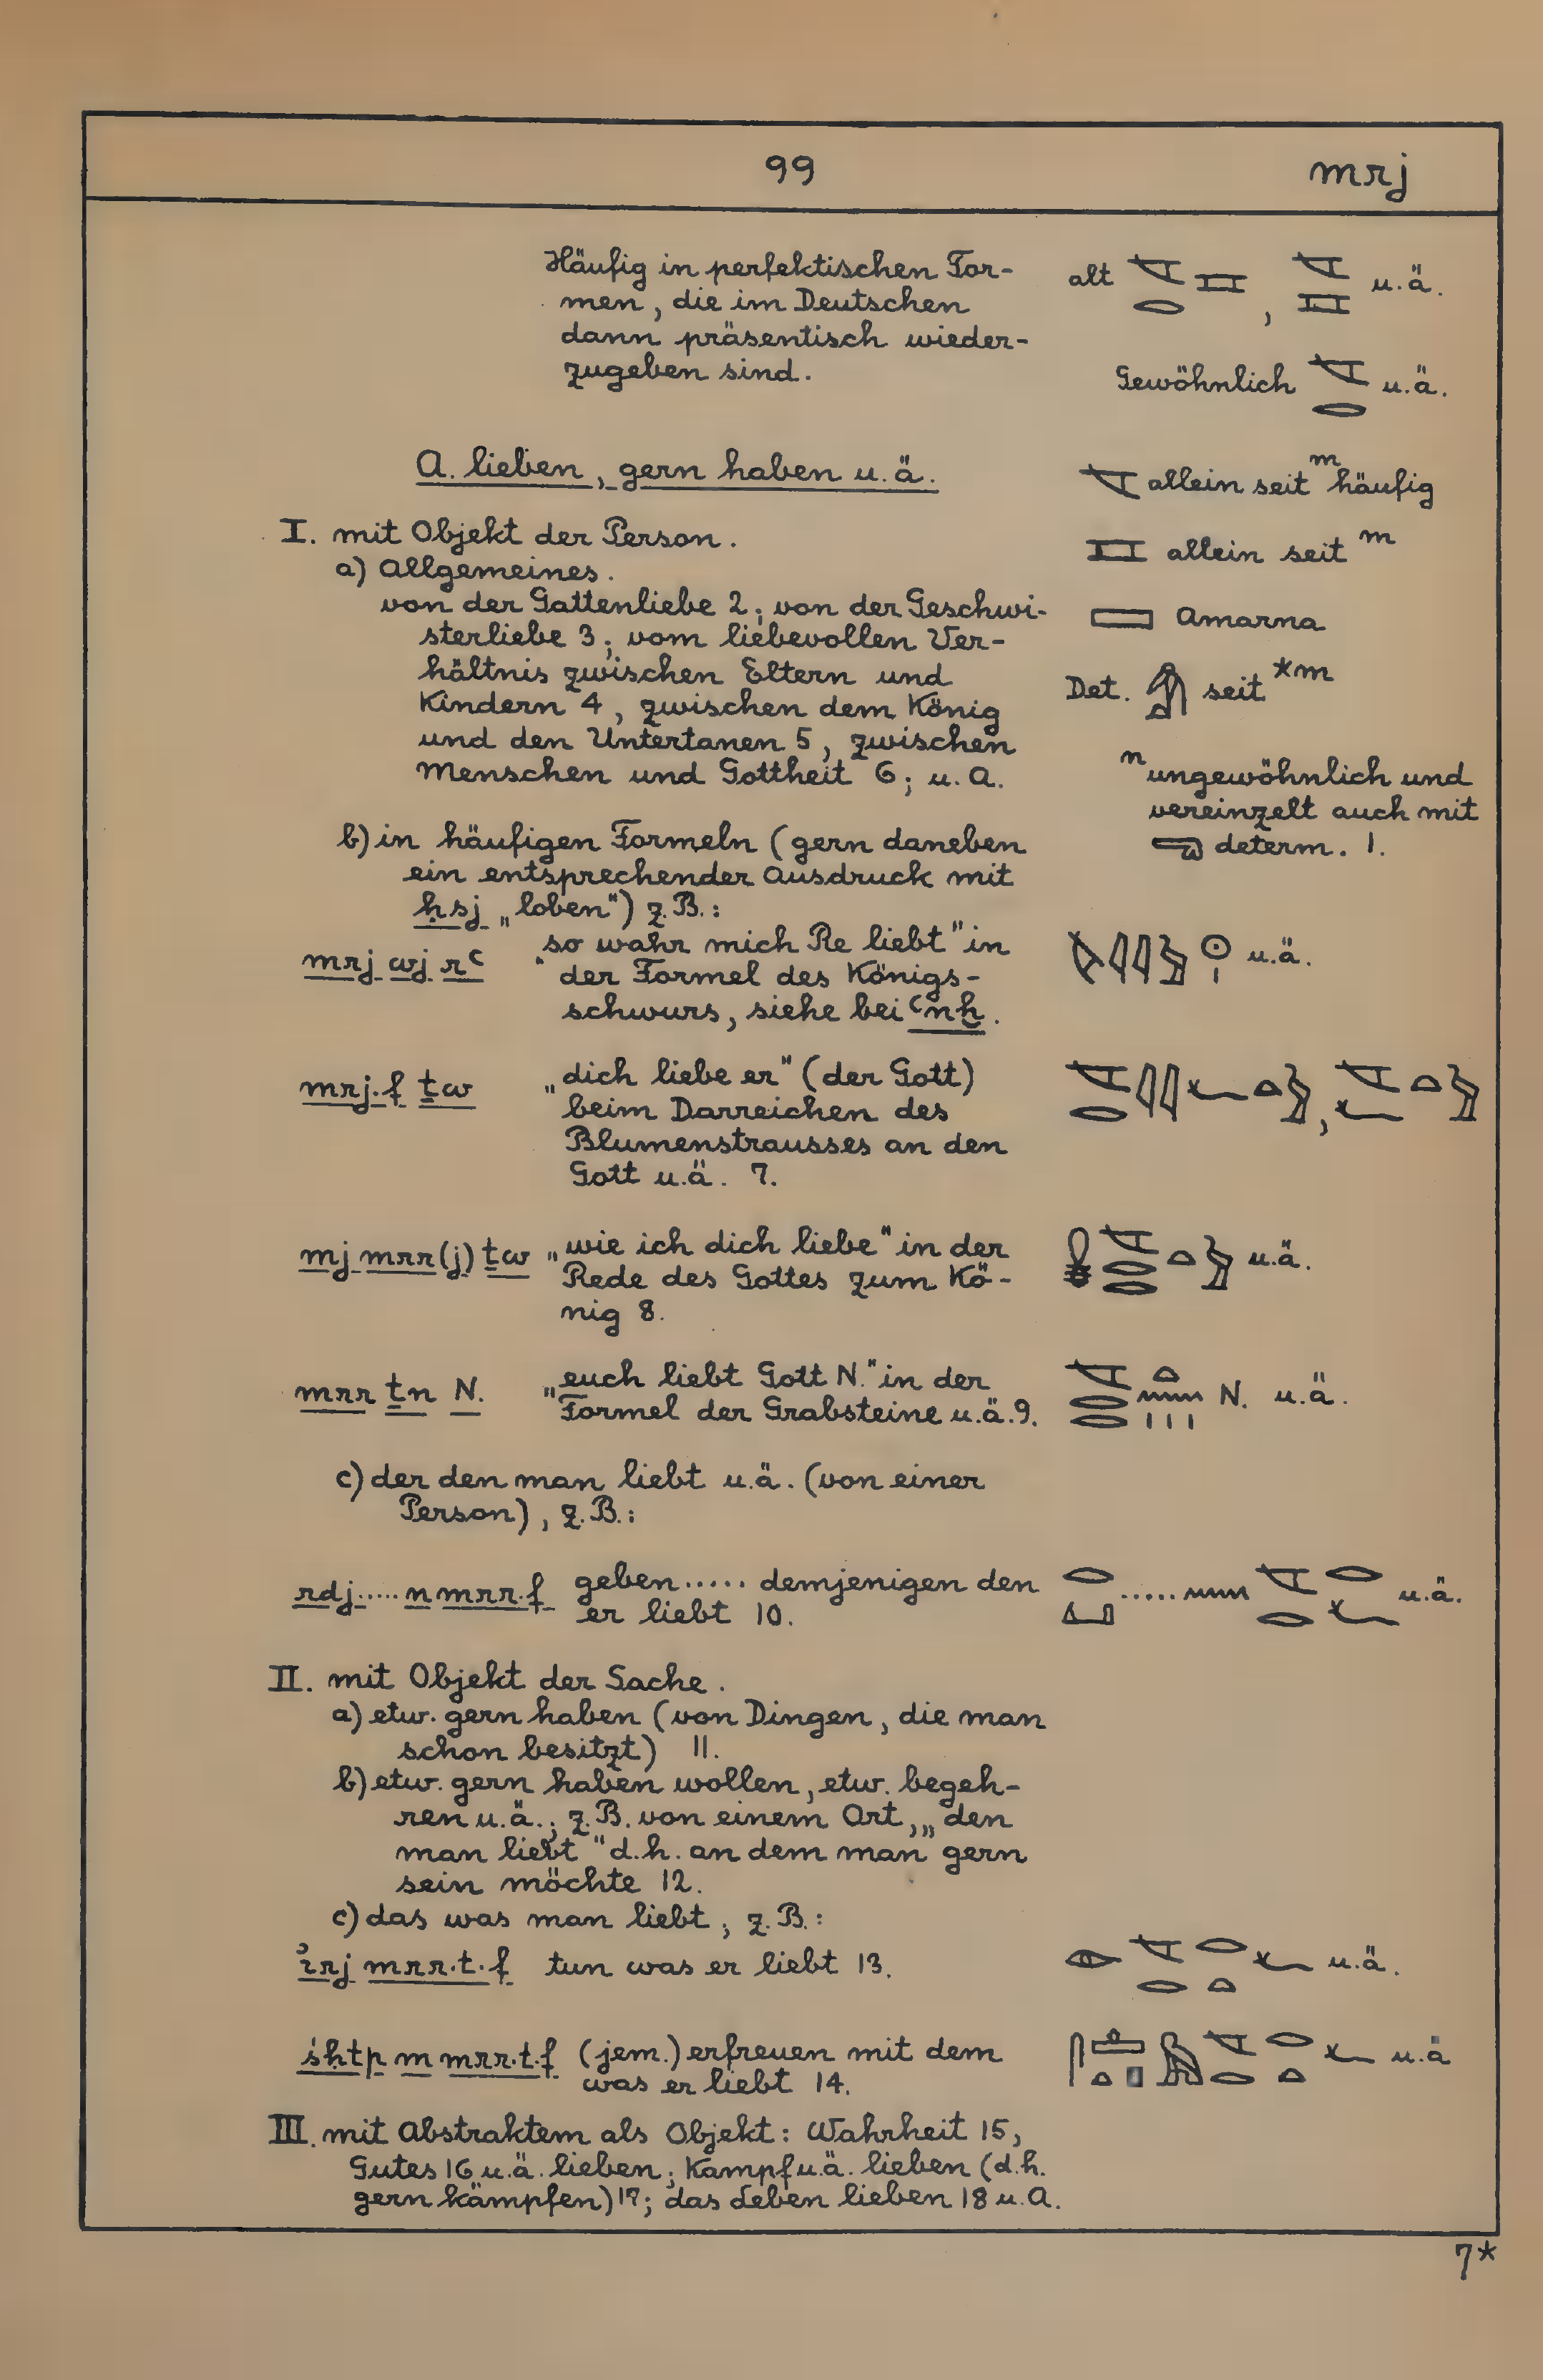 99 mrj
Häufig in perfektischen For-
men, die im Deutschen
dann präsentisch wieder-
zugeben sind.
alt 𓌻𓂋𓈘, 𓌻𓈘 u.ä.
Gewöhnlich 𓌻𓂋 u.ä.
A. lieben, gern haben u.ä.
𓌻 allein seit m häufig
I. mit Objekt der Person.
𓈘 allein seit m
a) Allgemeines.
von der Gattenliebe 2; von der Geschwi-
sterliebe 3; vom liebevollen Ver-
hältnis zwischen Eltern und
Kindern 4, zwischen dem König
und den Untertanen 5, zwischen
Menschen und Gottheit 6; u. A.
𓈙 Amarna
Det. 𓀁 seit *m
n ungewöhnlich und
vereinzelt auch mit
determ. 1.
b) in häufigen Formeln (gern daneben
ein entsprechender Ausdruck mit
ḥsj „loben") z.B.:
mrj wj rꜥ „so wahr mich Re liebt" in
der Formel des Königs-
schwurs, siehe bei ꜥnḫ.
u.ä.
mrj.f ṯw „dich liebe er" (der Gott)
beim Darreichen des
Blumenstrausses an den
Gott u.ä. 7.
𓌻𓂋𓇋𓇋𓆑𓏏𓅱, 𓌻𓆑𓏏𓅱
mj mrr(j) ṯw „wie ich dich liebe" in der
Rede des Gottes zum Kö-
nig 8.
𓏇𓌻𓂋𓂋𓏏𓅱 u.ä.
mrr ṯn N. „euch liebt Gott N." in der
Formel der Grabsteine u.ä. 9.
𓌻𓂋𓂋𓏏𓈖𓏥 N. u.ä.
c) der den man liebt u.ä. (von einer
Person), z.B.:
rdj ..... n mrr.f geben ..... demjenigen den
er liebt 10.
𓂋𓂞 ..... 𓈖𓌻𓂋𓂋𓆑 u.ä.
II. mit Objekt der Sache.
a) etw. gern haben (von Dingen, die man
schon besitzt) 11.
b) etw. gern haben wollen, etw. begeh-
ren u.ä.; z.B. von einem Ort, „den
man liebt" d.h. an dem man gern
sein möchte 12.
c) das was man liebt; z.B.:
ꞽrj mrr.t.f tun was er liebt 13.
𓁹𓌻𓂋𓂋𓏏𓆑 u.ä.
śḥtp m mrr.t.f (jem.) erfreuen mit dem
was er liebt 14.
𓋴𓊵𓏏𓊪𓅓𓌻𓂋𓂋𓏏𓆑 u.ä
III. mit Abstraktem als Objekt: Wahrheit 15,
Gutes 16 u.ä. lieben; Kampf u.ä. lieben (d.h.
gern kämpfen) 17; das Leben lieben 18 u. A.
7*